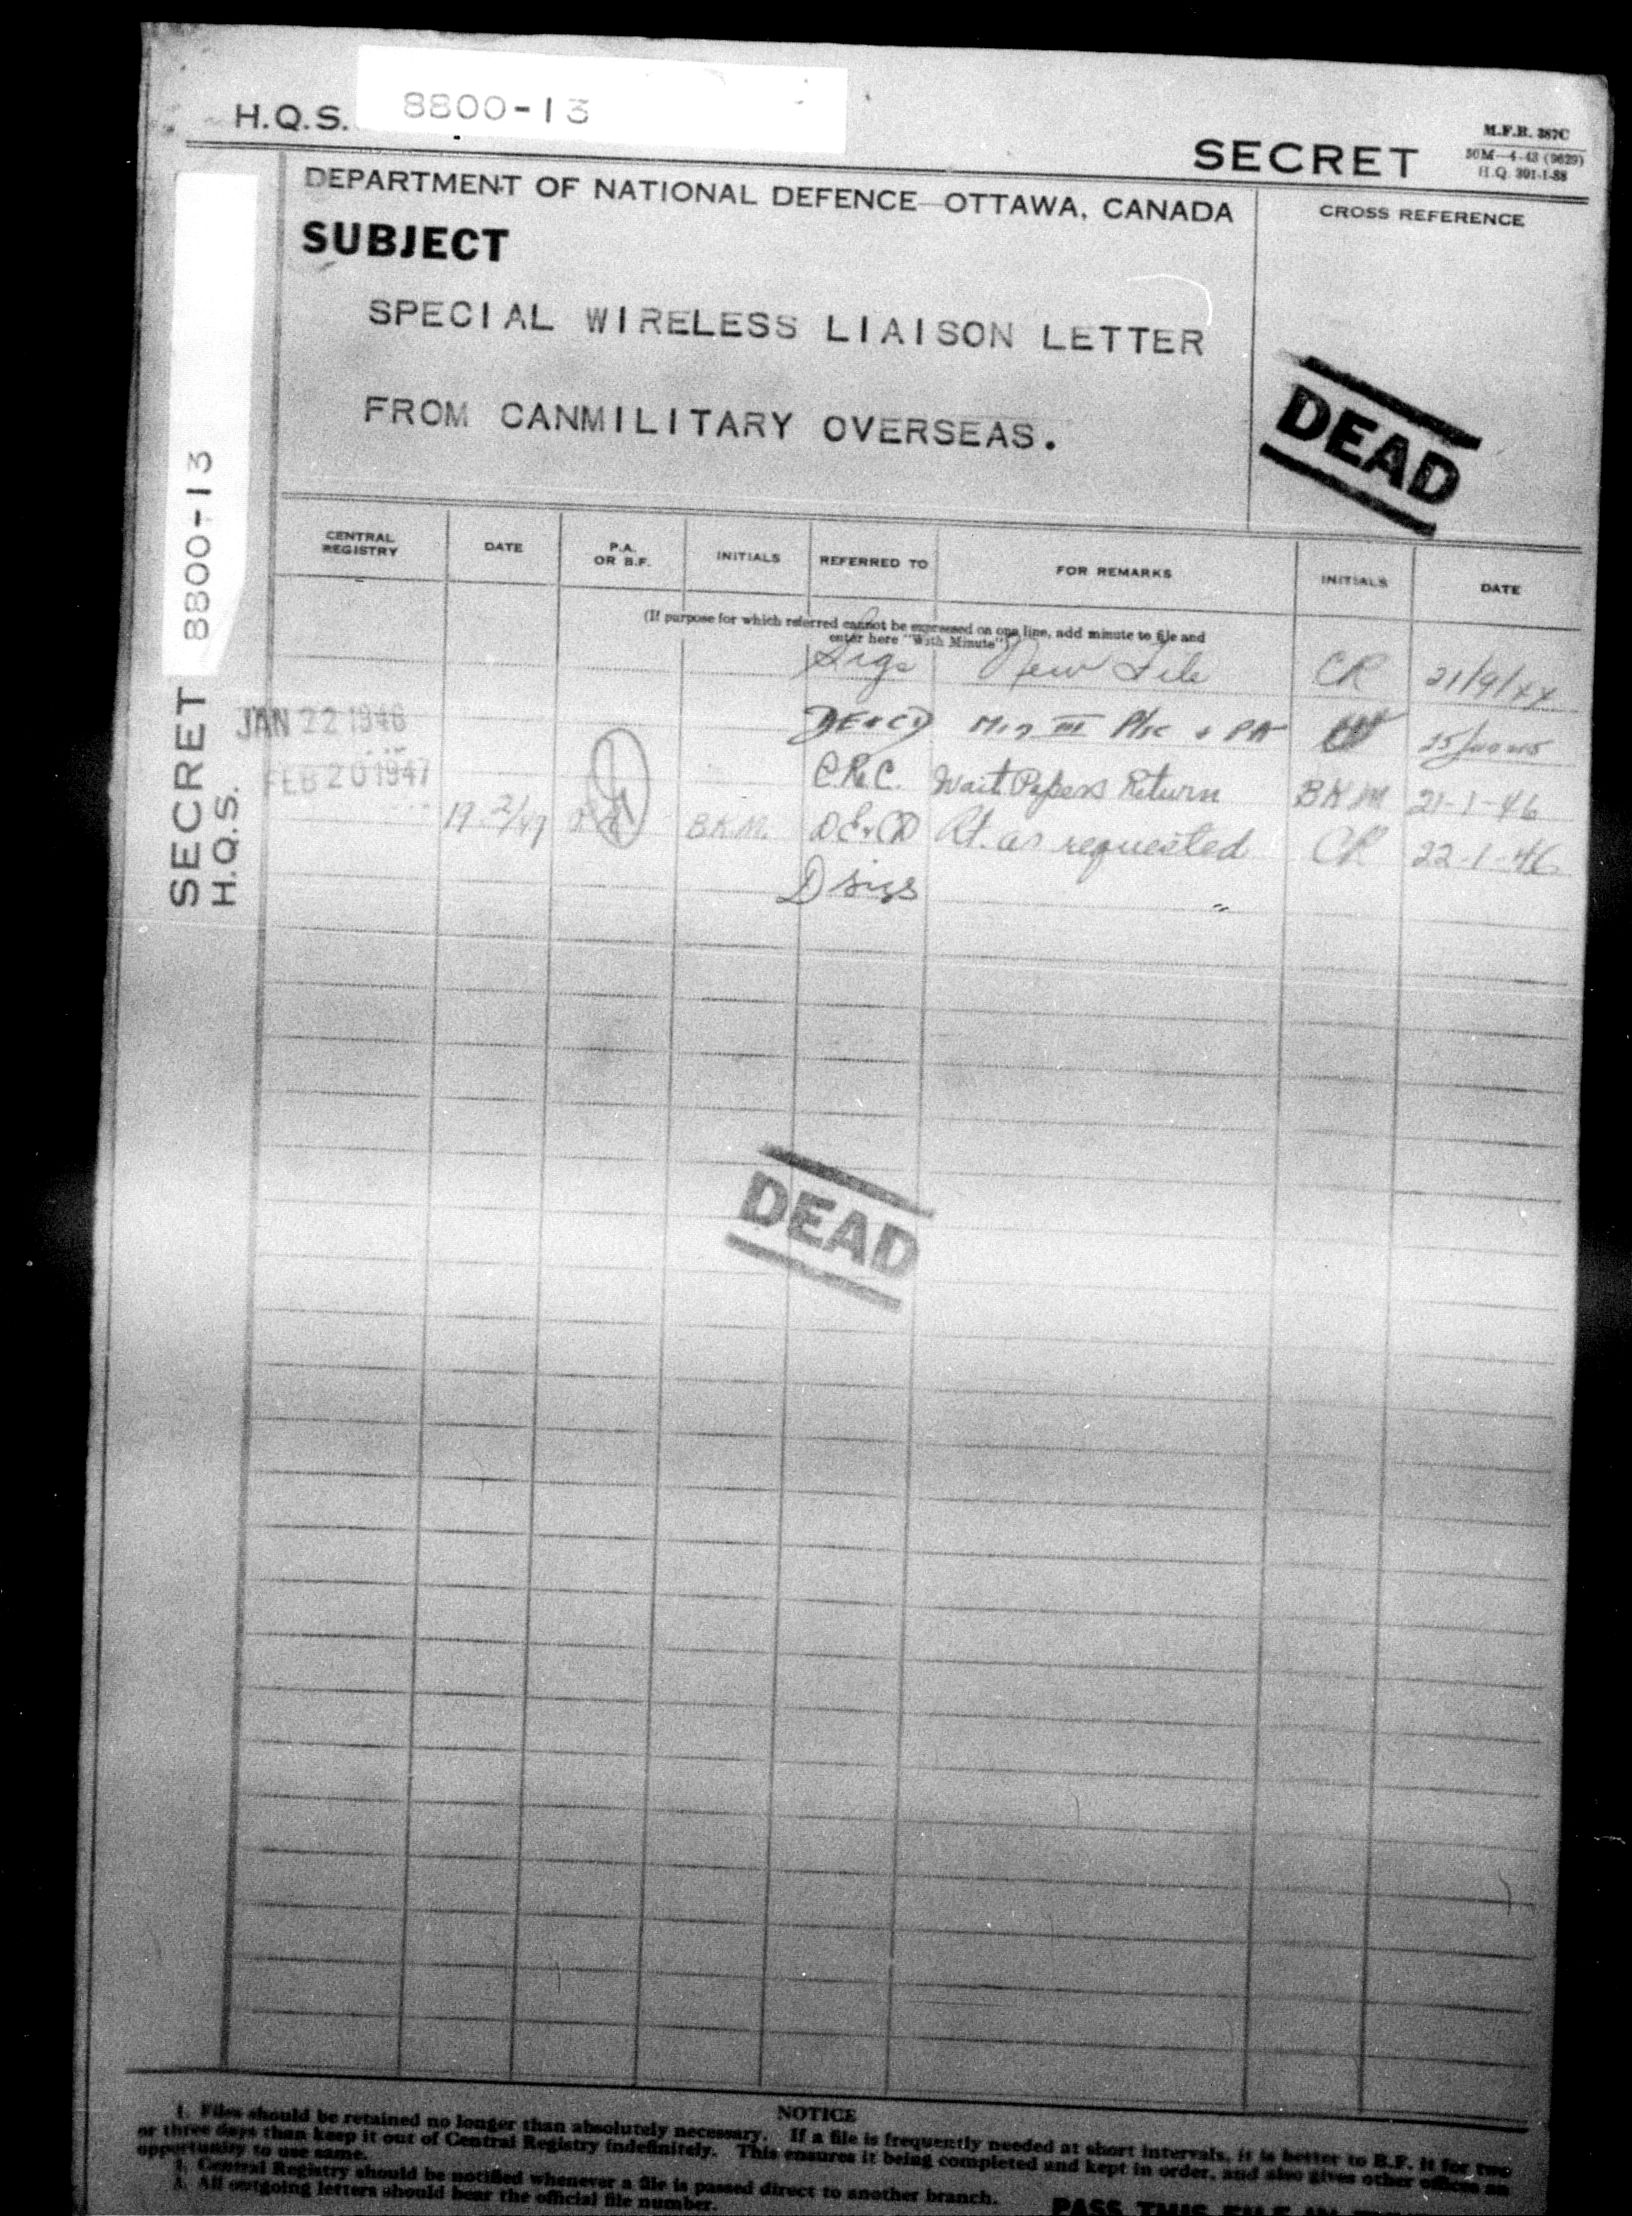 H.Q.S. 8800-13
SECRET
M.F.B. 387C
50M—4-43 (9629)
H.Q. 301-1-88
DEPARTMENT OF NATIONAL DEFENCE—OTTAWA, CANADA
CROSS REFERENCE
SUBJECT
SPECIAL WIRELESS LIAISON LETTER
FROM CANMILITARY OVERSEAS.
DEAD
SECRET 8800-13
H.Q.S.
CENTRAL REGISTRY DATE P.A. OR B.F. INITIALS REFERRED TO FOR REMARKS INITIALS DATE
(If purpose for which referred cannot be expressed on one line, add minute to file and
enter here "With Minute")
Sigs New File CR 21/9/44
JAN 22 1946
FEB 20 1947
C.R.C. Wait Papers Return BKM 21-1-46
19-2/47 B.K.M. D E & CD Rt. as requested CR 22-1-46
D Sigs "
DEAD
NOTICE
1. Files should be retained no longer than absolutely necessary. If a file is frequently needed at short intervals, it is better to B.F. it for two
or three days than keep it out of Central Registry indefinitely. This ensures it being completed and kept in order, and also gives other offices an
opportunity to use same.
2. Central Registry should be notified whenever a file is passed direct to another branch.
3. All outgoing letters should bear the official file number.
PASS THIS FILE IN